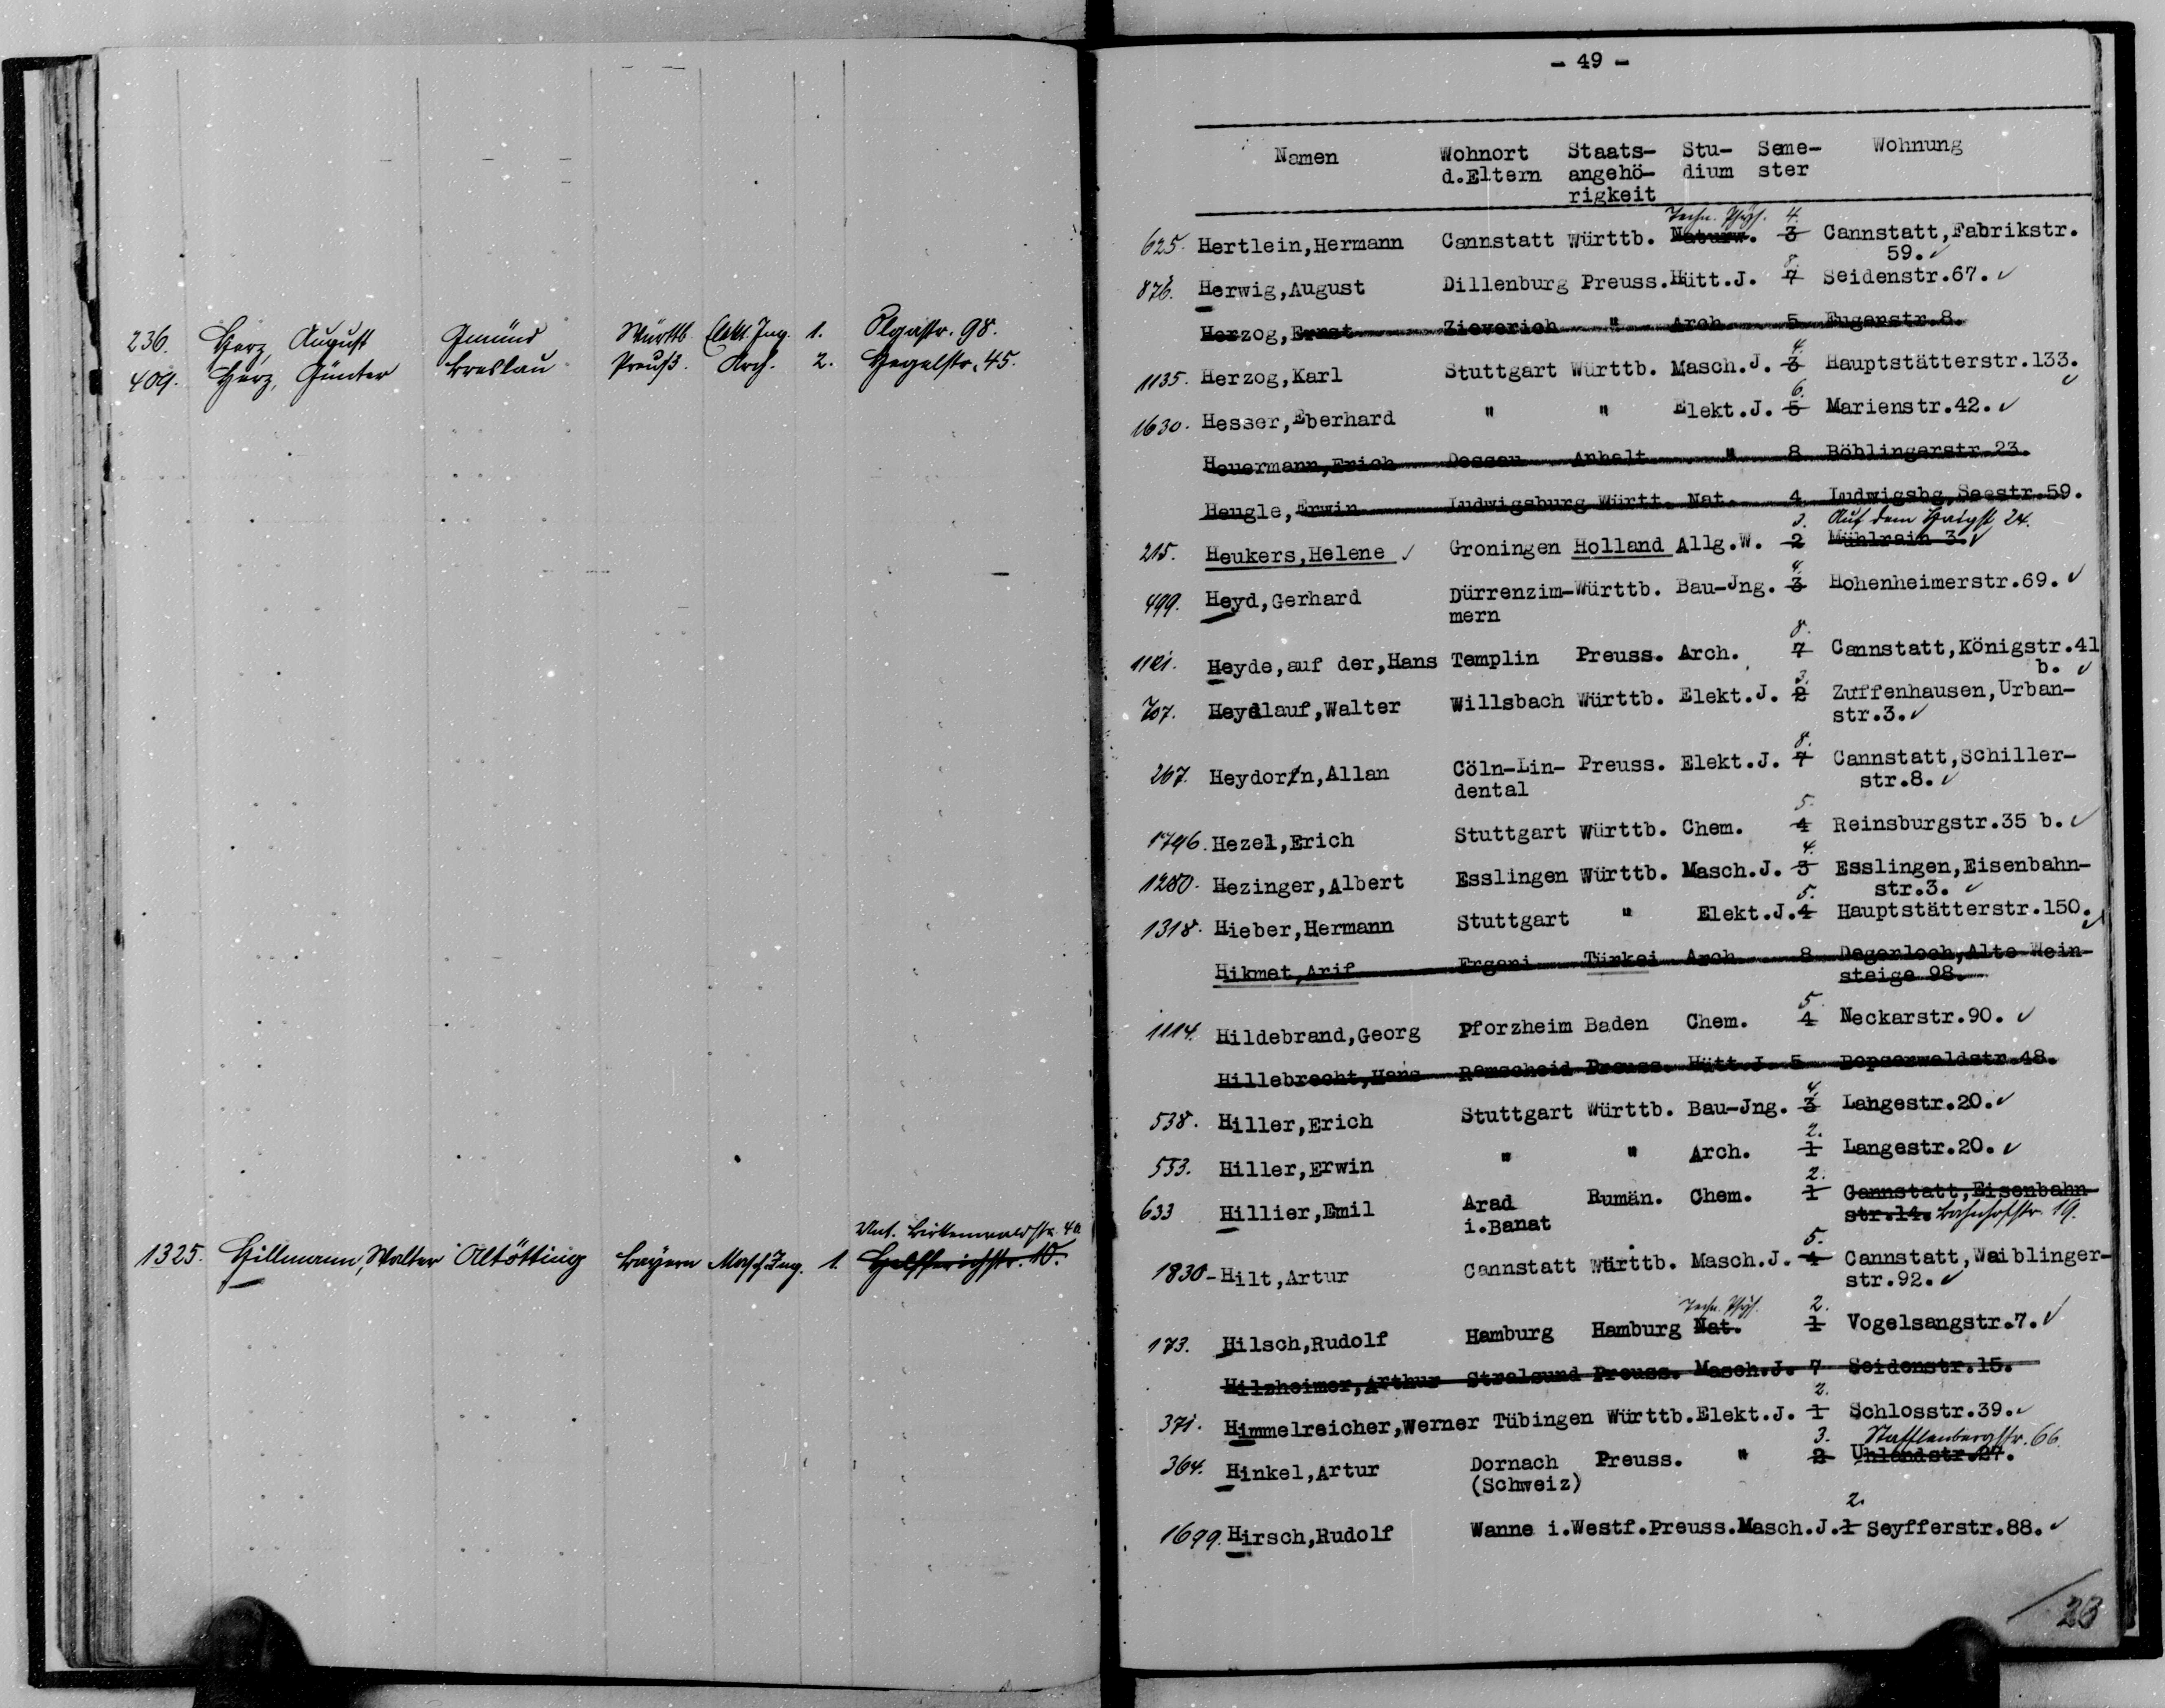 236. Herz, August Gmünd Württb. Elekt. Ing. 1. Olgastr. 98.
409. Herz, Günter Breslau Preuß. Arch. 2. Hegelstr. 45.
Unt. Birkenwaldstr. 40
1325. Hillmann, Walter Altötting Bayern Masch. Ing. 1. Helfferichstr. 10.
- 49 -
Namen Wohnort Staats- Stu- Seme- Wohnung
d.Eltern angehö- dium ster
rigkeit
Techn. Phys. 4.
625. Hertlein,Hermann Cannstatt Württb. Naturw. 3 Cannstatt,Fabrikstr.
59. ✓
8.
876. Herwig,August Dillenburg Preuss. Hütt.J. 7 Seidenstr.67. ✓
Herzog,Ernst Zieverich " Arch. 5 Eugenstr.8.
4.
1135. Herzog,Karl Stuttgart Württb. Masch.J. 3 Hauptstätterstr.133. ✓
6.
1630. Hesser,Eberhard " " Elekt.J. 5 Marienstr.42. ✓
Heuermann,Erich Dessau Anhalt " 8 Böblingerstr.23.
Heugle,Erwin Ludwigsburg Württ. Nat. 4 Ludwigsbg,Seestr.59.
3. Auf dem Haigst 24.
215. Heukers,Helene ✓ Groningen Holland Allg.W. 2 Mühlrain 3. ✓
4.
499. Heyd,Gerhard Dürrenzim- Württb. Bau-Jng. 3 Hohenheimerstr.69. ✓
mern
8.
1121. Heyde,auf der,Hans Templin Preuss. Arch. 7 Cannstatt,Königstr.41
b. ✓
3.
707. Heydlauf,Walter Willsbach Württb. Elekt.J. 2 Zuffenhausen,Urban-
str.3. ✓
8.
267. Heydorn,Allan Cöln-Lin- Preuss. Elekt.J. 7 Cannstatt,Schiller-
dental str.8. ✓
5.
1796. Hezel,Erich Stuttgart Württb. Chem. 4 Reinsburgstr.35 b. ✓
4.
1280. Hezinger,Albert Esslingen Württb. Masch.J. 3 Esslingen,Eisenbahn-
str.3. ✓
5.
1318. Hieber,Hermann Stuttgart " Elekt.J. 4 Hauptstätterstr.150. ✓
Hikmet,Arif Ergani Türkei Arch 8 Degerloch,Alte Wein-
steige 98.
5
1114. Hildebrand,Georg Pforzheim Baden Chem. 4 Neckarstr.90. ✓
Hillebrecht,Hans Remscheid Preuss. Hütt.J. 5 Bopserwaldstr.48.
4.
538. Hiller,Erich Stuttgart Württb. Bau-Jng. 3 Langestr.20. ✓
2.
553. Hiller,Erwin " " Arch. 1 Langestr.20. ✓
2.
633 Hillier,Emil Arad Rumän. Chem. 1 Cannstatt,Eisenbahn-
i.Banat str.14. Bahnhofstr. 19.
5.
1830- Hilt,Artur Cannstatt Württb. Masch.J. 4 Cannstatt,Waiblinger-
str.92. ✓
Techn. Phys. 2.
173. Hilsch,Rudolf Hamburg Hamburg Nat. 1 Vogelsangstr.7. ✓
Hilzheimer,Arthur Stralsund Preuss. Masch.J. 7 Seidenstr.15.
2.
371. Himmelreicher,Werner Tübingen Württb. Elekt.J. 1 Schlosstr.39. ✓
3. Stafflenbergstr. 66.
364. Hinkel,Artur Dornach Preuss. " 2 Uhlandstr.27.
(Schweiz)
2.
1699. Hirsch,Rudolf Wanne i.Westf. Preuss. Masch.J. 1 Seyfferstr.88. ✓
/23